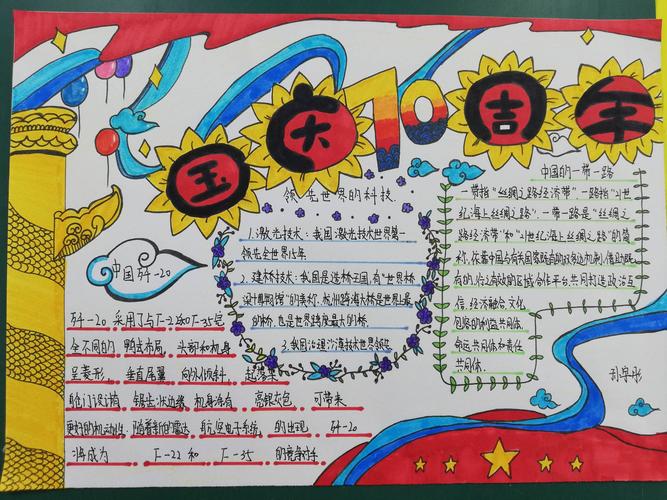 国庆70周年
中国的一带一路
一带指"丝绸之路经济带"一路指"21世
纪海上丝绸之路",一带一路是"丝绸之
路经济带"和"21世纪海上丝绸之路"的简
称,依靠中国与有关国家既有的双多边机制,借助既
有的,行之有效的区域合作平台,共同打造政治互
信、经济融合、文化
包容的利益共同体、
命运共同体和责任
共同体.
领先世界的科技
1.激光技术:我国激光技术世界第一
领先全世界15年
2.建桥技术:我国是造桥王国,有"世界桥
梁博物馆"的美称,杭州跨海大桥是世界上最
的桥,也是世界跨度最大的桥.
3.我国治理沙漠技术世界领先
中国歼-20
歼-20 采用了与F-22和F-35完
全不同的 鸭式布局, 头部和机身
呈菱形, 垂直尾翼 向外倾斜, 起落架
舱门设计为 锯齿状边缘, 机身涂有 亮银灰色 可带来
更好的机动性, 随着新的雷达 航空电子系统 的出现 歼-20
将成为 F-22 和 F-35 的竞争对手